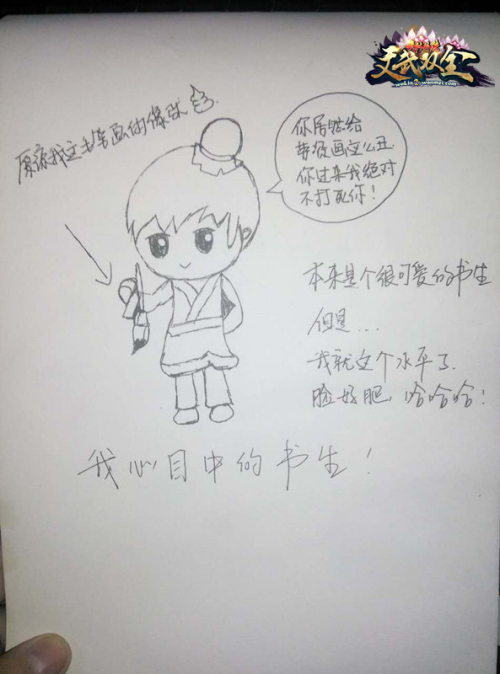 文武双全
wulin2.wanmei.com
原谅我这毛笔画的像坨
你居然给
画这么丑
你过来我绝对
不打死你！
本来是个很可爱的书生
但是...
我就这个水平了.
脸好肥，哈哈哈！
我心目中的书生！